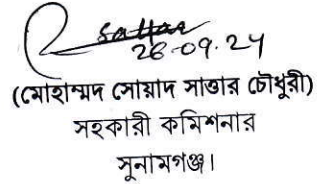 sattar
26-09.24
(মোহাম্মদ সোয়াদ সাত্তার চৌধুরী)
সহকারী কমিশনার
সুনামগঞ্জ।